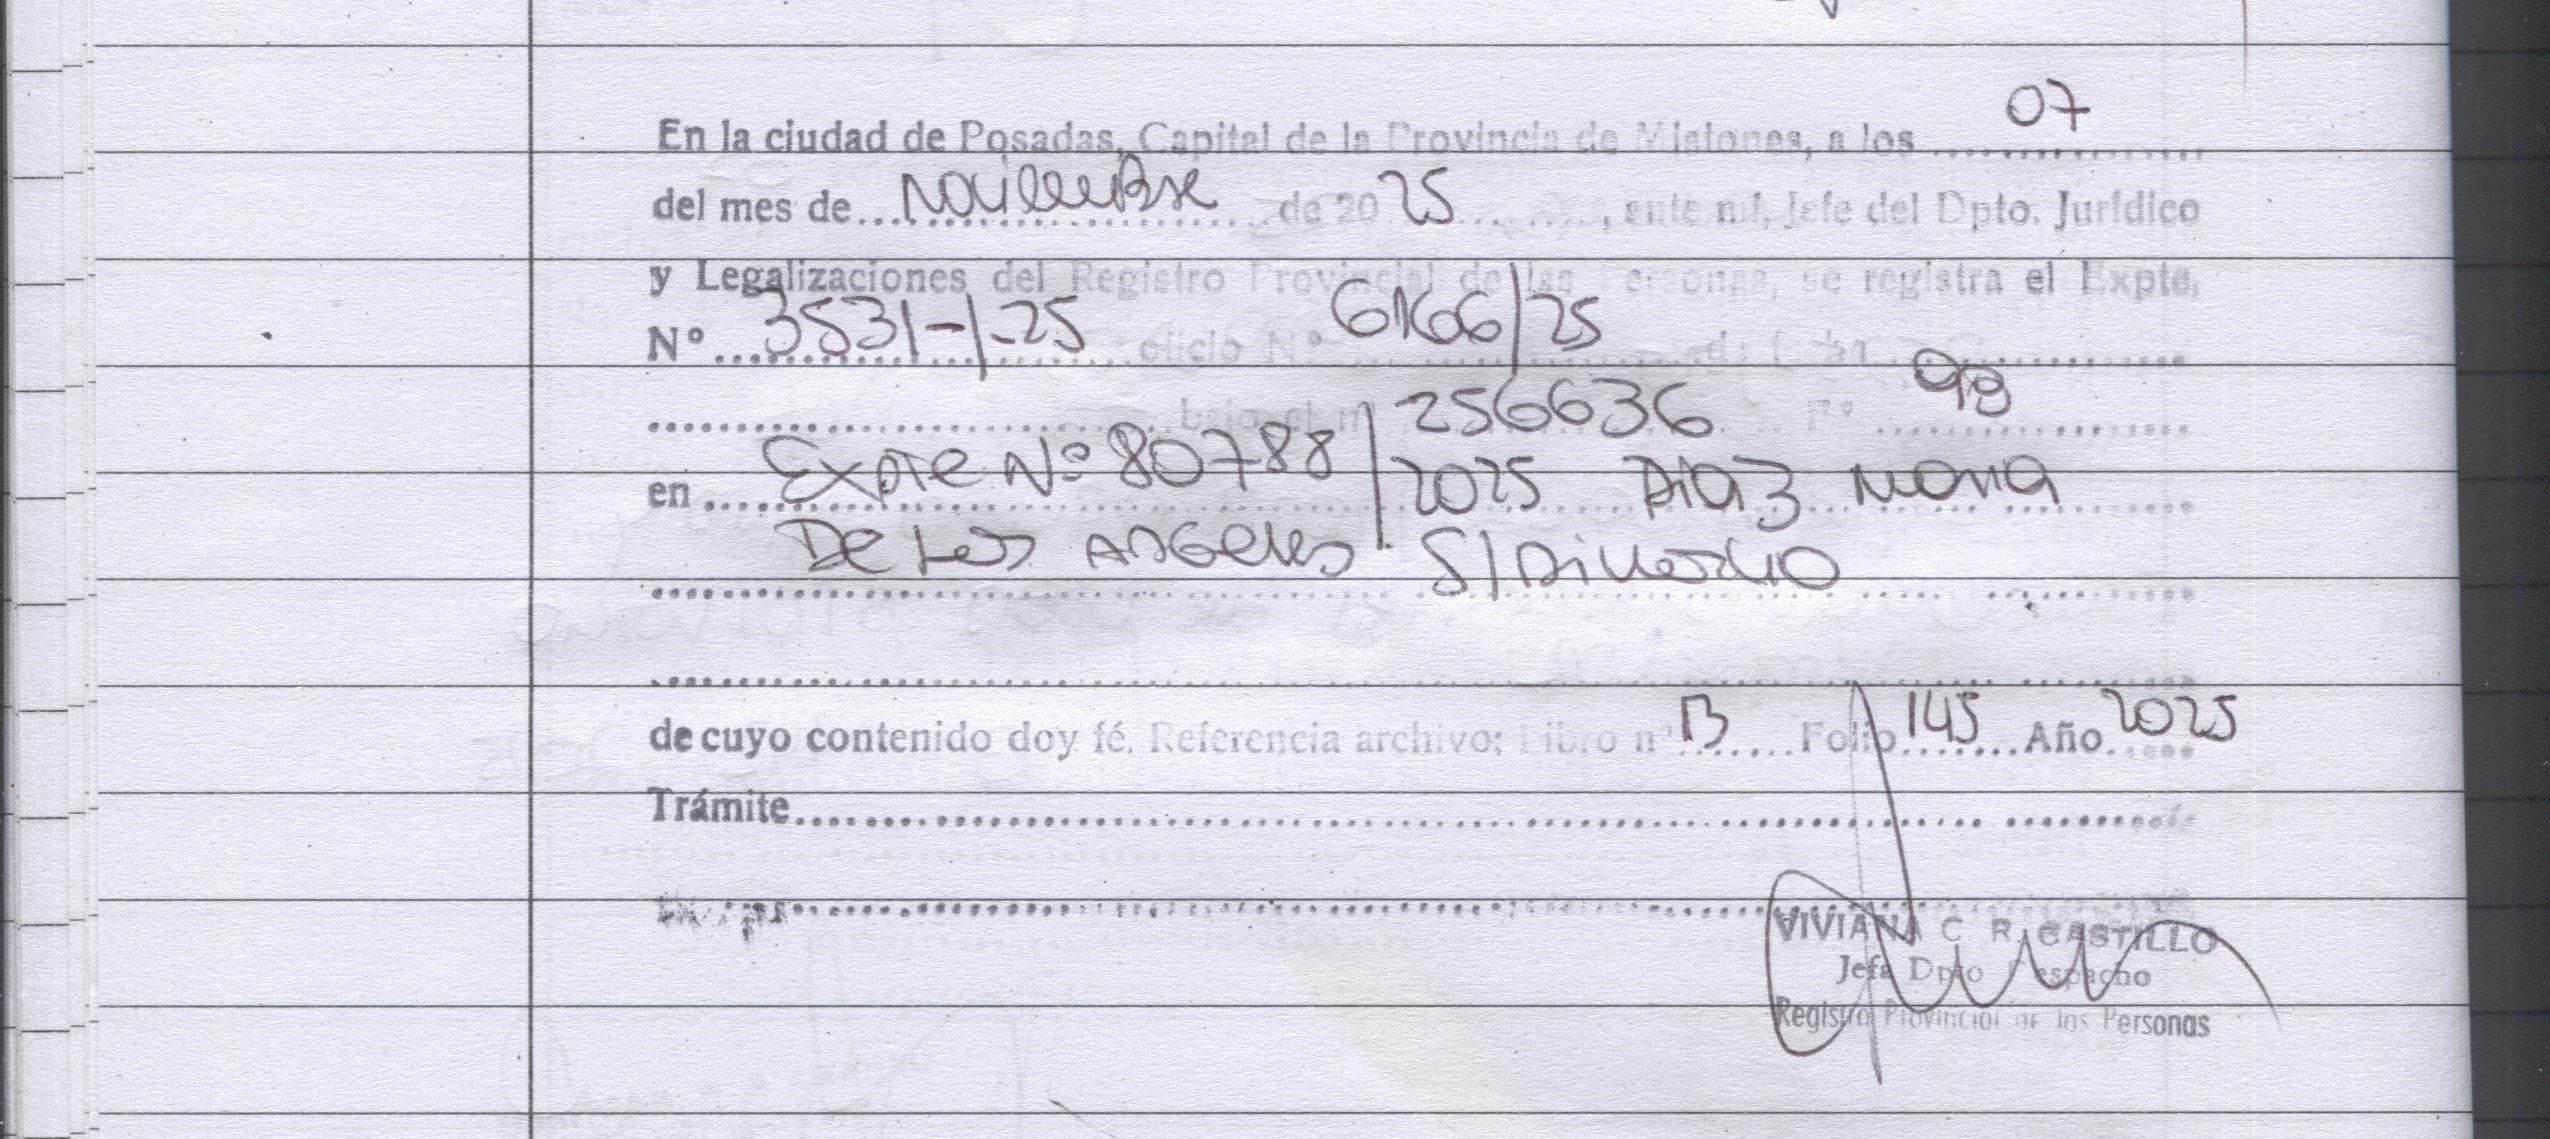 En la ciudad de Posadas, Capital de la Provincia de Misiones, a los 07
del mes de Noviembre de 20 25, ante mí, Jefe del Dpto. Jurídico
y Legalizaciones del Registro Provincial de las Personas, se registra el Expte.
Nº 3531-1-25 oficio Nº 6166/25 de fecha
bajo el nº 256636 Fº 98
en Expte Nº 80788/2025 Diaz Maria
De Los Angeles S/Divorcio
de cuyo contenido doy fé. Referencia archivo: Libro nº 13 Folio 145 Año 2025
Trámite
VIVIANA C. R. CASTILLO
Jefa Dpto Despacho
Registro Provincial de las Personas